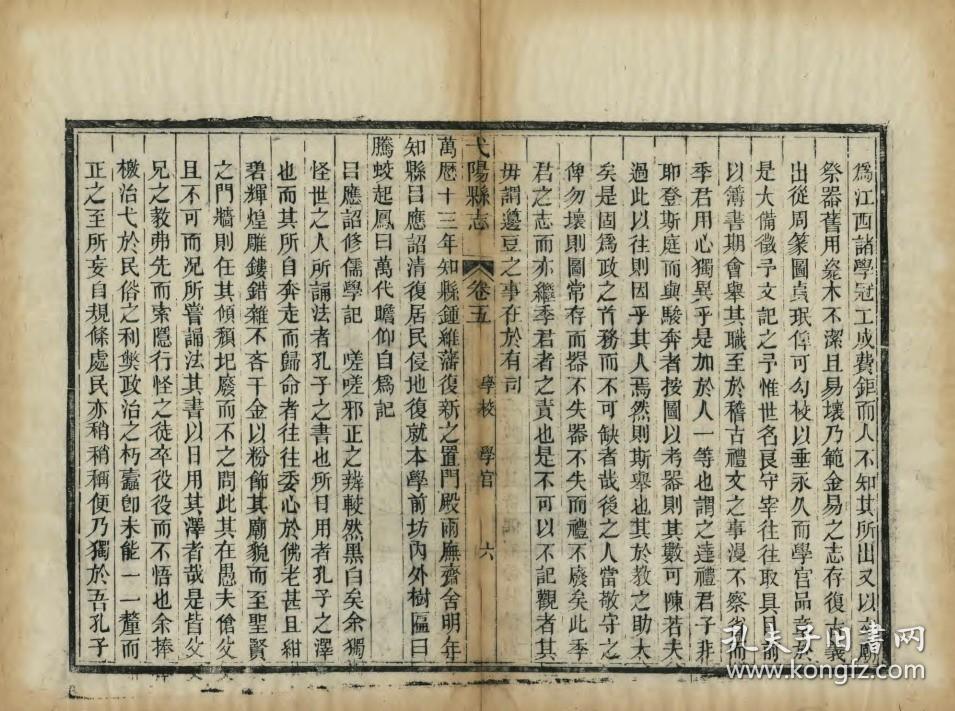 爲江西諸學冠工成費鉅而人不知其所出又以文廟
祭器舊用瓷木不潔且易壞乃範金易之志存復古義
出從周篆圖貞珉俾可勾校以垂永久而學官品章於
是大備徵予文記之予惟世名良守宰往往取具目前
以簿書期會舉其職至於稽古禮文之事漫不察省而
季君用心獨異乎是加於人一等也謂之達禮君子非
耶登斯庭而與駿奔者按圖以考器則其數可陳若夫
過此以往則因乎其人焉然則斯舉也其於教之助大
矣是固爲政之首務而不可缺者哉後之人當敬守之
俾勿壞則圖常存而器不失器不失而禮不廢矣此季
君之志而亦繼季君者之責也是不可以不記觀者其
毋謂籩豆之事在於有司
弋陽縣志 卷五 學校 學宮 六
萬曆十三年知縣鍾維藩復新之置門殿兩廡齋舍明年
知縣呂應詔清復居民侵地復就本學前坊內外樹區曰
騰蛟起鳳曰萬代瞻仰自爲記
呂應詔修儒學記 嗟嗟邪正之辨較然黑白矣余獨
怪世之人所誦法者孔子之書也所日用者孔子之澤
也而其所自奔走而歸命者往往委心於佛老甚且紺
碧輝煌雕鏤錯雜不吝千金以粉飾其廟貌而至聖賢
之門牆則任其傾頹圮廢而不之問此其在愚夫傖父
且不可而況所嘗誦法其書以日用其澤者哉是皆父
兄之教弗先而索隱行怪之徒卒役役而不悟也余捧
檄治弋於民俗之利獘政治之朽蠧卽未能一一釐而
正之至所妄自規條處民亦稍稍稱便乃獨於吾孔子
孔夫子旧書网
www.kongfz.com